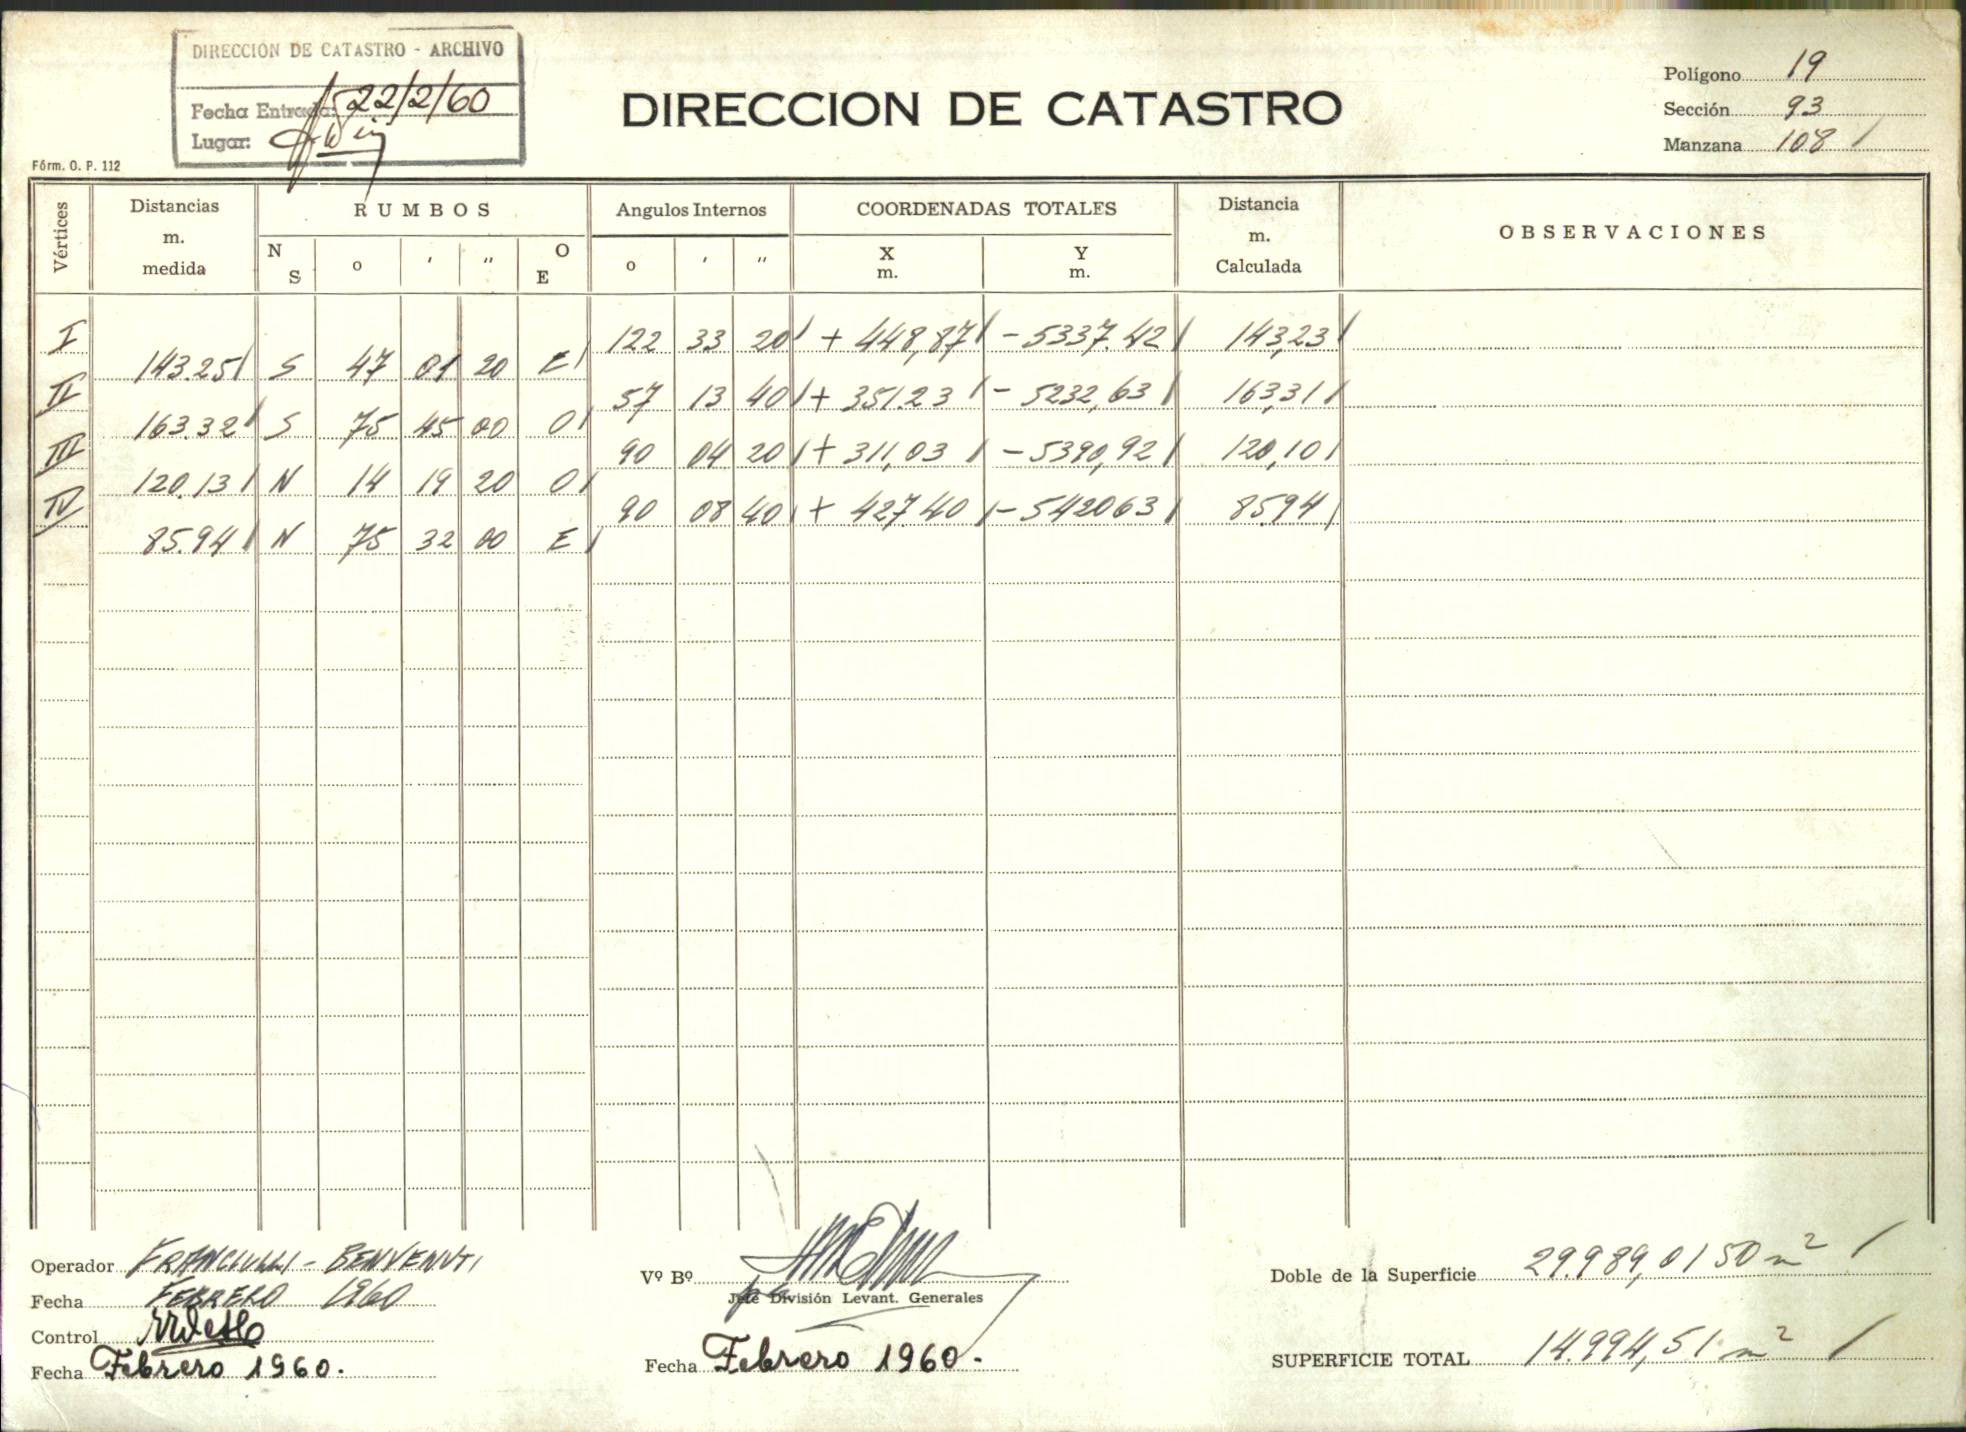 DIRECCION DE CATASTRO - ARCHIVO
Fecha Entrada: 22/2/60
Lugar:
Fórm. O. P. 112
DIRECCION DE CATASTRO
Polígono 19
Sección 93
Manzana 108 /
Vértices
Distancias m. medida
RUMBOS
N S
o ' "
O E
Angulos Internos
o ' "
COORDENADAS TOTALES
X m.
Y m.
Distancia m. Calculada
OBSERVACIONES
I 122 33 20 + 448,87 - 5337.42 143,23
143.25 S 47 01 20 E
II 57 13 40 + 351.23 - 5232,63 163,31
163.32 S 75 45 00 O
III 90 04 20 + 311,03 - 5390,92 120,10
120.13 N 14 19 20 O
IV 90 08 40 + 427.40 - 542063 85.94
85.94 N 75 32 00 E
Operador FRANCIULLI - BENVENUTI
Fecha FEBRERO 1960
Control
Fecha Febrero 1960.
Vº Bº
Jefe División Levant. Generales
Fecha Febrero 1960.
Doble de la Superficie 29.989,0150 m² /
SUPERFICIE TOTAL 14.994,51 m² /